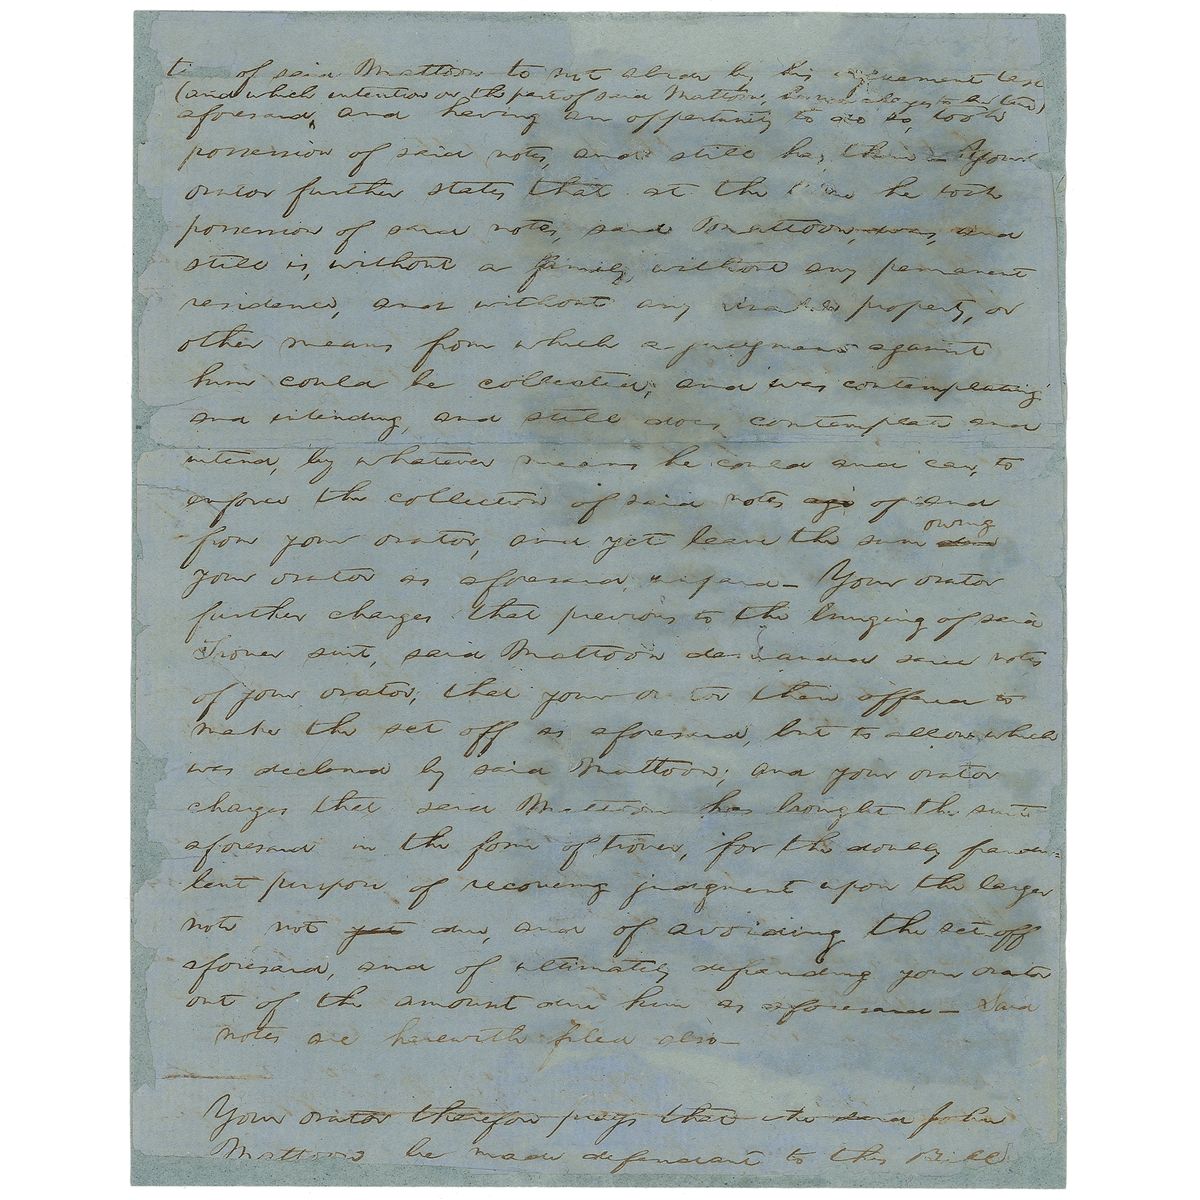 of said Mattoon to not abide by his agreement last
(and which intention on the part of said Mattoon,
aforesaid, and having an opportunity to do so, took
possession of said notes, and still has them - Your
orator further states that at the time he took
possession of said notes, said Mattoon, was, and
still is, without a family, without any permanent
residence, and without any visable property, or
other means from which a judgment against
him could be collected; and was contemplating
and intending, and still does contemplate and
intend, by whatever means he could and can, to
enforce the collection of said notes of and
from your orator, and yet leave the sum owing
your orator as aforesaid, unpaid - Your orator
further charges that previous to the bringing of said
Trover suit, said Mattoon demanded said notes
of your orator; that your orator then offered to
make the set off as aforesaid, but to allow which
was declined by said Mattoon; and your orator
charges that said Mattoon has brought the suit
aforesaid in the form of trover, for the doubly fraudu-
lent purpose of recovering judgment upon the larger
note not yet due, and of avoiding the set off
aforesaid, and of ultimately defrauding your orator
out of the amount due him as aforesaid - Said
notes are herewith filed also -
Your orator therefore prays that the said John
Mattoon be made defendant to this Bill